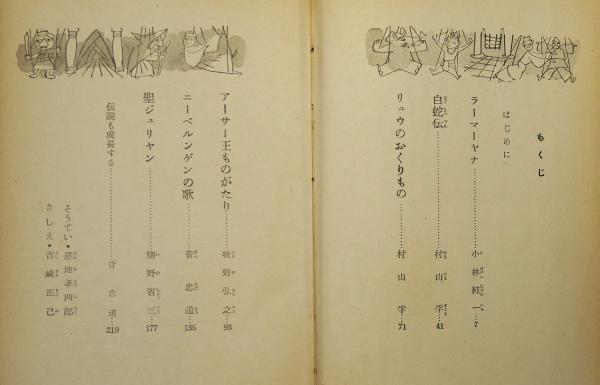 もくじ
はじめに
ラーマーヤナ……小林純一…7
白蛇伝……村山 学…41
リュウのおくりもの……村山 学…71
アーサー王ものがたり……牧野弘之…93
ニーベルンゲンの歌……菅 忠道…135
聖ジュリヤン……猪野省三…177
伝説も成長する……菅 忠道…219
そうてい・恩地孝四郎
さしえ・吉崎正己